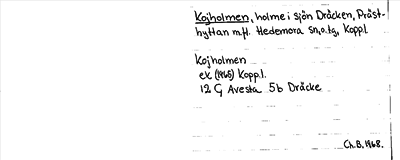 Kojholmen, holme i sjön Dråcken, Präst-
hyttan m.fl. Hedemora sn,o.tg, Koppl.
Kojholmen
ek (1968) Koppl.
12 G Avesta 5b Dråcke
Ch.B, 1968.